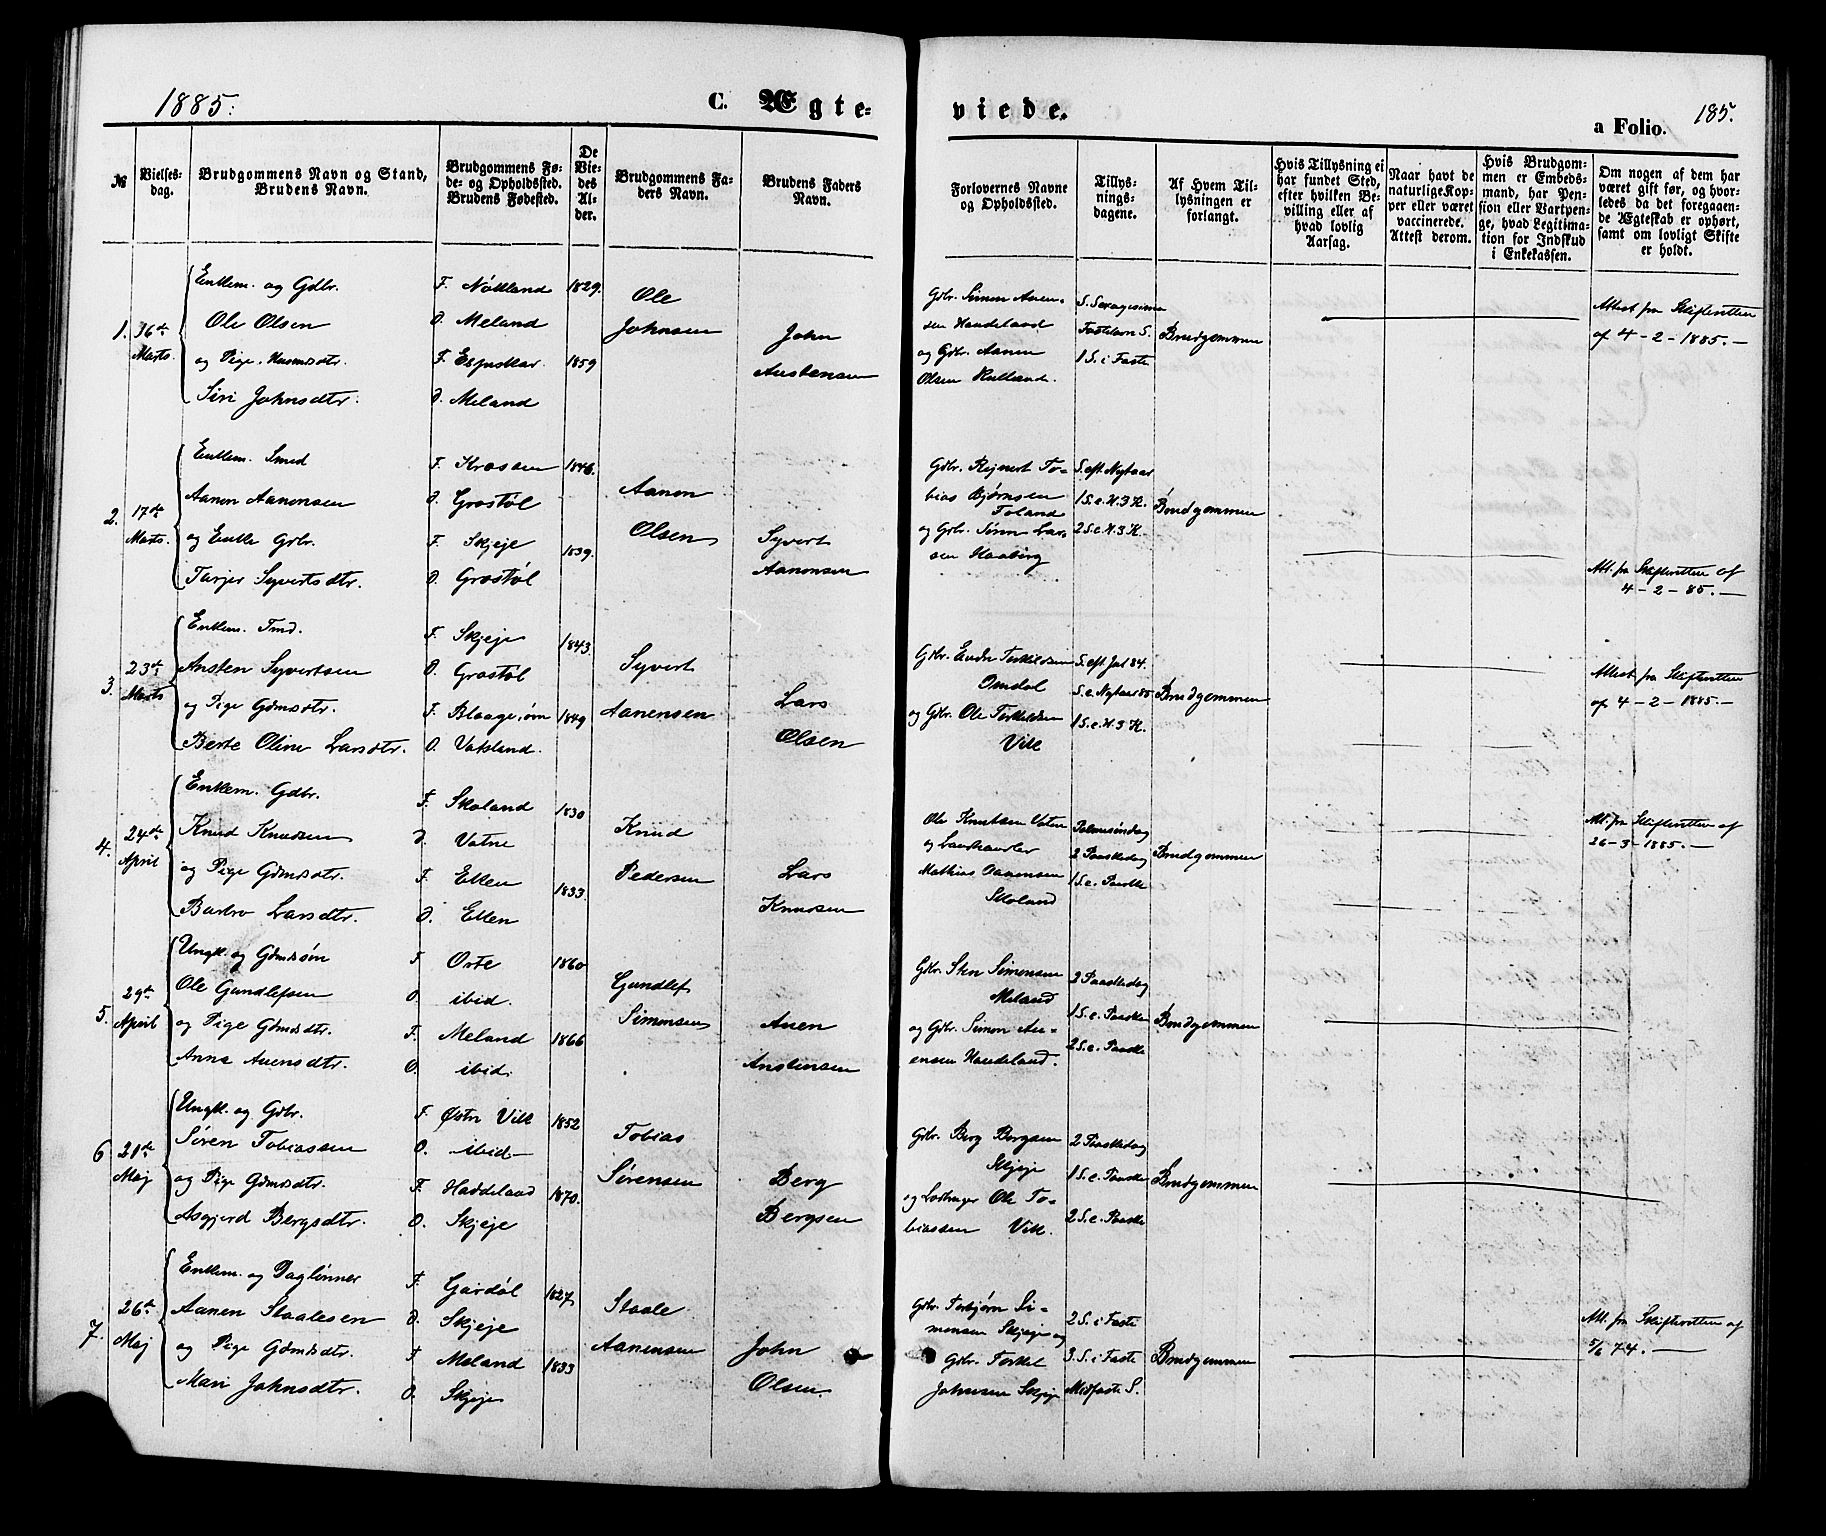 1885.
C. Ægte-
viede.
185.
a Folio.
№
Vielses-
dag.
Brudgommens Navn og Stand,
Brudens Navn.
Brudgommens Fø-
de- og Opholdssted.
Brudens Fødested.
De
Vie-
des
Al-
der.
Brudgommens Fa-
ders Navn.
Brudens Faders
Navn.
Forlovernes Navne
og Opholdssted.
Tillys-
nings-
dagene.
Af Hvem Til-
lysningen er
forlangt.
Hvis Tillysning ei
har fundet Sted,
efter hvilken Be-
villing eller af
hvad lovlig
Aarsag.
Naar havt de
naturlige Kop-
per eller været
vaccinerede.
Attest derom.
Hvis Brudgom-
men er Embeds-
mand, har Pen-
sion eller Vartpen-
ge, hvad Legitima-
tion for Indskud
i Enkekassen.
Om nogen af dem har
været gift før, og hvor-
ledes da det foregaaen-
de Ægteskab er ophørt,
samt om lovligt Skifte
er holdt.
1.
Marts.
Enkem. og Gdbr.
Ole Olsen
og Pige, Husmdtr.
Siri Johnsdtr.
F. Nökland
O. Meland
F. Espeskar
O. Meland
1829.
1859
Ole
Johnsen
John
Anstensen
Gdbr. Simon Auen-
sen Haudeland
og Gdbr. Aanen
Olsen
S. Sexagesima
Fastelavn S.
1 S. i Faste
Brudgommen
Attest fra Skifteretten
af 4-2-1885.-
2.
17de
Marts.
Enkem. Smed
Aanon Aanonsen
og Enke Gdbr.
Tarjer Syvertsdtr.
F.
O. Grostöl
F. Skjeje
O. Grostöl
1846.
1839.
Aanon
Olsen
Syvert
Aanonsen
Gdbr. Rejnert To-
bias Bjørnsen
Toland
og Gdbr. Sørn Lar-
sen Haaberg
S. eft. Nytaar
1 S. e. H. 3 K.
2 S. e. H. 3 K.
Brudgommen
Att. fra Skifteretten af
4-2-85.-
3.
23de
Marts
Enkem.
Ansten Syvertsen
og Pige Gdmdsdtr.
Berte Oline Larsdtr.
F. Skjeje
O. Grostöl
F.
O. Vatsland.
1843.
1849
Syvert
Aanensen
Lars
Olsen
Gdbr. Endr Terkildsen
Omdal
og Gdbr. Ole Terkildsen
Vill
S. eft. Jul 84.
S. e. Nytaar 85
1 S. e. H. 3 K.
Brudgommen
Attest fra Skifteretten
af 4-2-1885.-
4.
24de
April
Enkem. Gdbr.
Knud Knudsen
og Pige Gdmdsdtr.
Barbro Larsdtr.
F. Skoland
O. Vatne
F. Eken
O. Eken
1830
1833.
Knud
Pedersen
Lars
Knudsen
Ole Knutsen Vatne
og Landhandler
Mathias Aanensen
Skoland
Palmesöndag
2 Paaskedag
1 S. e. Paaske
Brudgommen
Att. fra Skifteretten af
26-3-1885.-
5.
29de
April
Ungk. og Gdmdssön
Ole Gundlefsen
og Pige Gdmdsdtr.
Anne Auensdtr.
F. Orte
O. ibid.
F. Meland
O. ibid.
1860
1866
Gundlef
Simonsen
Auen
Anstensen
Gdbr. Sten Simonsen
Meland
og Gdbr. Simon Au-
ensen Haudeland.
2 Paaskedag
1 S. e. Paaske
2 S. e. Paaske
Brudgommen
6
21de
Maj
Ungk. og Gdbr.
Søren Tobiassen
og Pige Gdmdsdtr.
Asgjerd Bergsdtr.
F. Østre Vill
O. ibid
F. Haddeland
O. Skjeje
1852
1870.
Tobias
Sørensen
Berg
Bergsen
Gdbr. Berg Bergsen
Skjeje
Ole To-
biassen Vill.
2 Paaskedag
1 S. e. Paaske
2 S. e. Paaske
Brudgommen
7.
26de
Maj
Enkem. og Daglönner
Aanen Staalesen
og Pige Gdmdsdtr.
Mari Johnsdtr.
F. Gardöl
O. Skjeje
F. Meland
O. Skjeje
1827
1833
Staale
Aanensen
John
Olsen
Gdbr. Torbjørn Si-
monsen Skjeje og
Gdbr. Terkel
Johnsen Skjeje
2 S. i Faste
3 S. i Faste
Midfaste S.
Brudgommen
Att. fra Skifteretten af
5/6 74.-